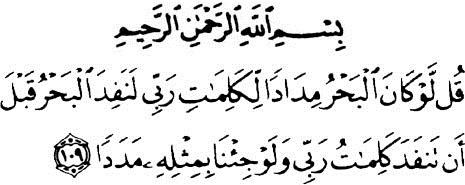 بِسْمِ ٱللَّهِ ٱلرَّحْمَٰنِ ٱلرَّحِيمِ
قُل لَّوْ كَانَ ٱلْبَحْرُ مِدَادًا لِّكَلِمَٰتِ رَبِّى لَنَفِدَ ٱلْبَحْرُ قَبْلَ
أَن تَنفَدَ كَلِمَٰتُ رَبِّى وَلَوْ جِئْنَا بِمِثْلِهِۦ مَدَدًا ۝١٠٩